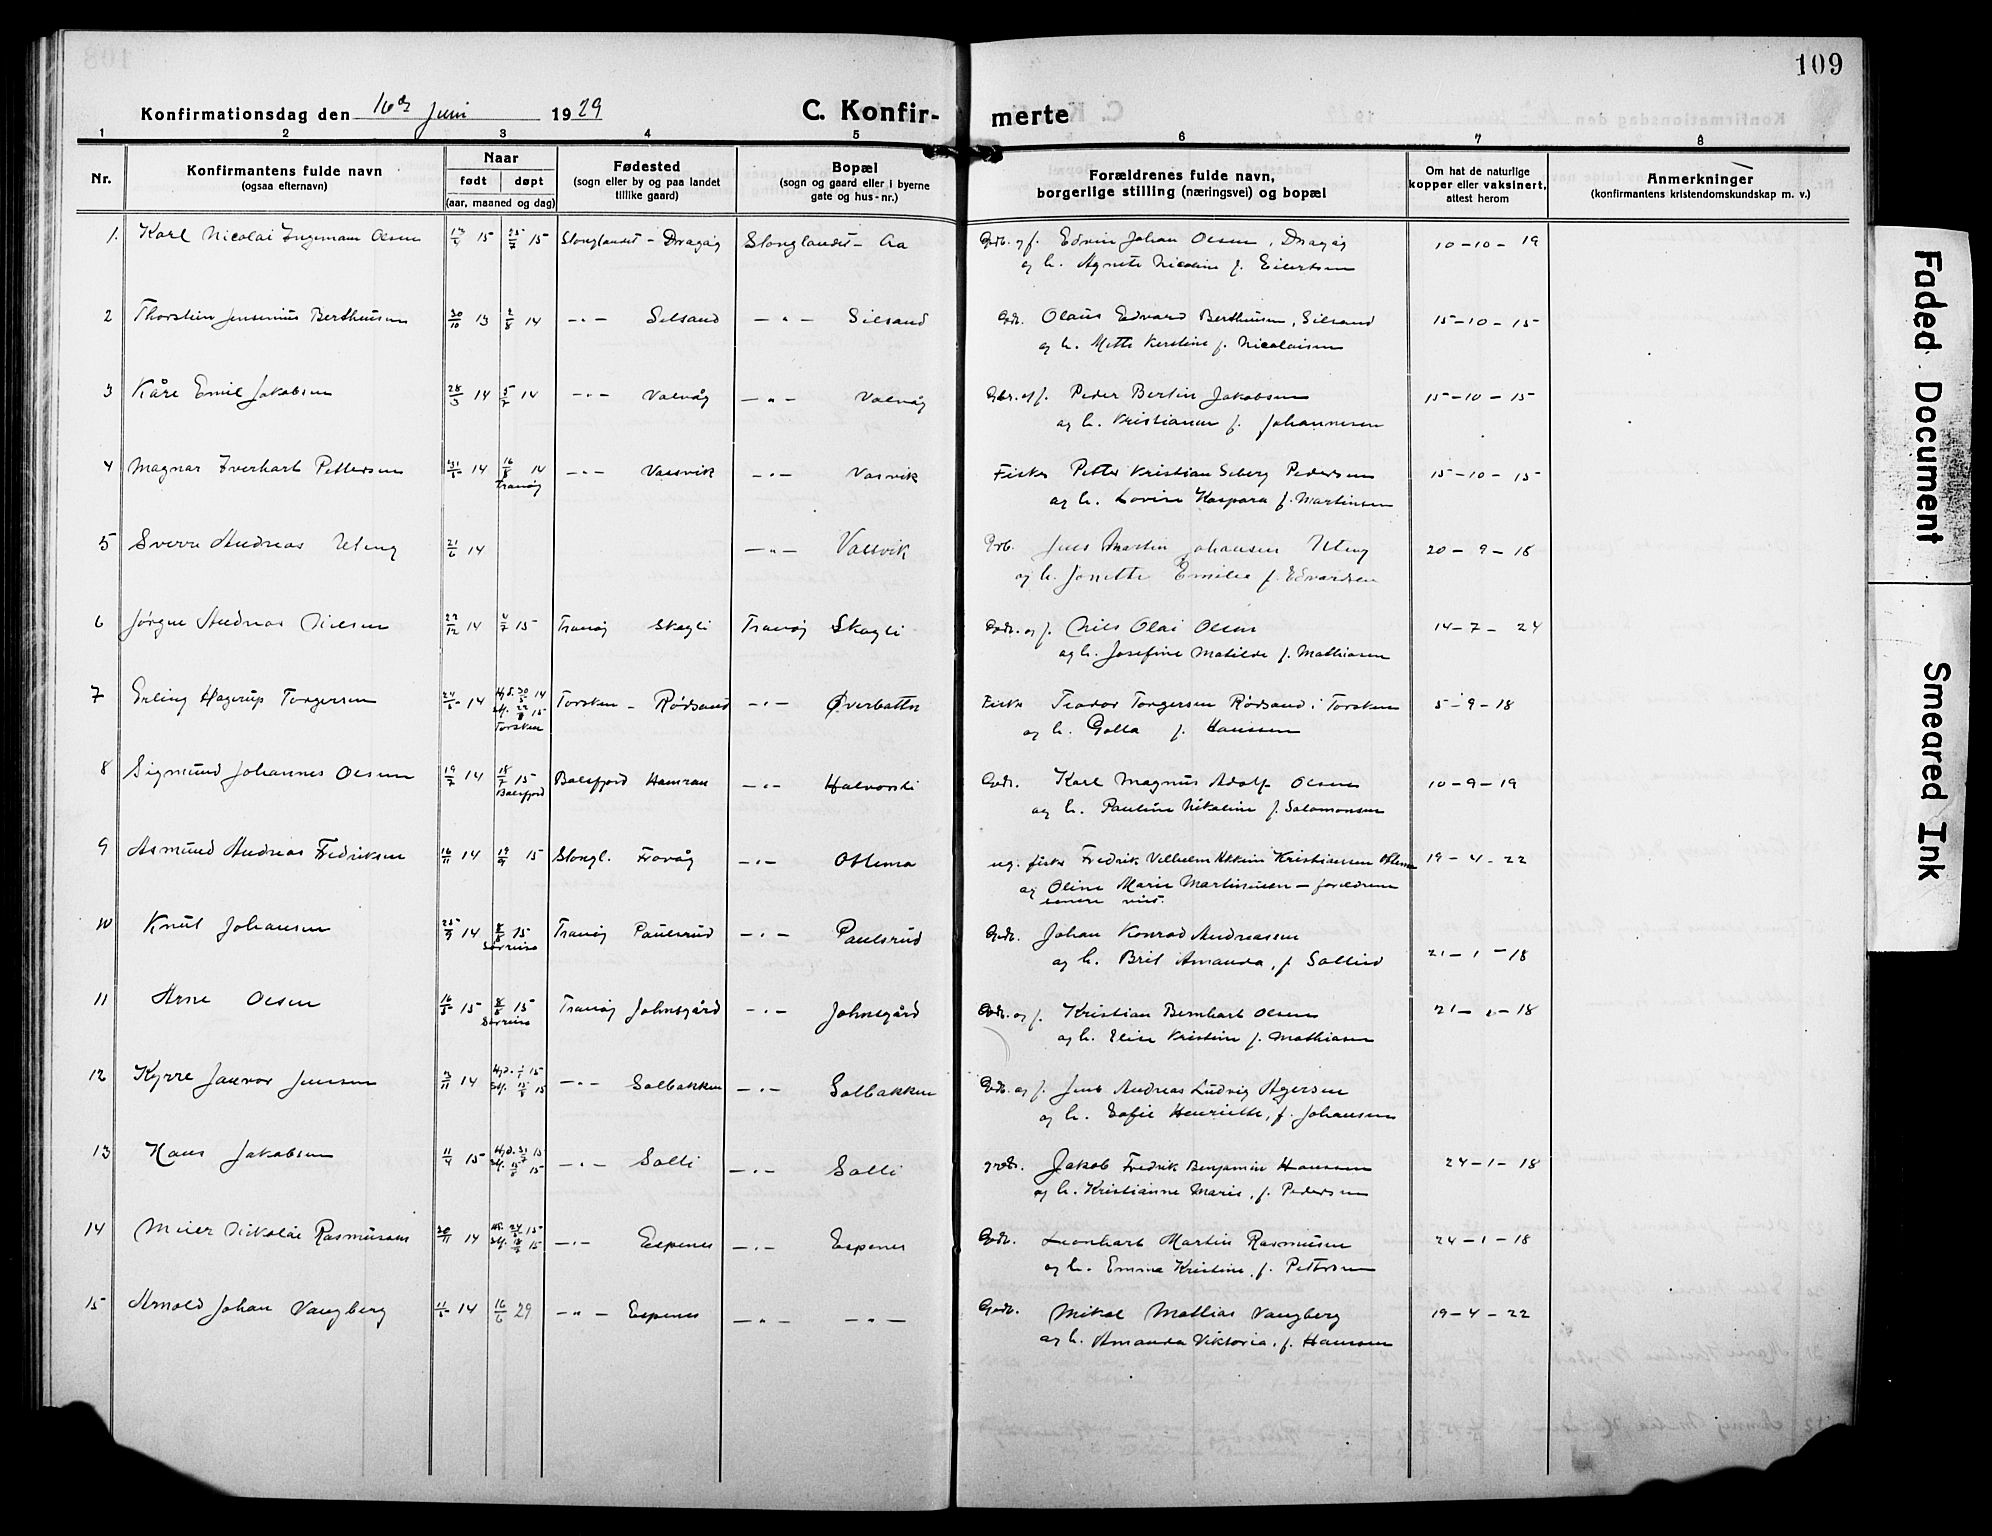 109
Konfirmationsdag den 16de Juni 1929 C. Konfir- merte
1 2 3 4 5 6 7 8
Nr. Konfirmantens fulde navn (ogsaa efternavn) Naar født døpt (aar, maaned og dag) Fødested (sogn eller by og paa landet tillike gaard) Bopæl (sogn og gaard eller i byerne gate og hus-nr.) Forældrenes fulde navn, borgerlige stilling (næringsvei) og bopæl Om hat de naturlige kopper eller vaksinert, attest herom Anmerkninger (konfirmantens kristendomskundskap m. v.)
1. Karl Nicolai Ingemann Olsen 15 15 Stonglandet - Dragøy Stonglandet - Aa Gbr. og f. Edvin Johan Olsen, Dragøy 10-10-19
og h. Agnete Nicoline f. Eilertsen
2 Thorstein Jensenius Bertheusen 30/10 13 2/8 14 -"- Silsand -"- Silsand Gbr. Olaus Edvard Bertheusen, Silsand 15-10-15
og h. Mette Kerstine f. Nicolaisen
3 Kåre Emil Jakobsen 28/3 14 5/7 14 -"- Valvåg -"- Valvåg Gbr. og f. Peder Bertin Jakobsen 15-10-15
og h. Kristianne f. Johannesen
4 Magnar Everhart Pettersen 14 16/8 14 -"- Vassvik -"- Vasvik Fisker Petter Kristian Seberg Pedersen 15-10-15
Tranøy og h. Lovise Kaspara f. Martinsen
5 Sverre Andreas Uteng 21/6 14 -"- Vassvik Grb. Jens Martin Johansen Uteng 20-9-18
og h. Jonette Emilie f. Edvardsen
6 Jørgen Andreas Nielsen 22/12 14 4/7 15 Tranøy Skogli Tranøy Skogli Gbr. og f. Nils Olai Olsen 14-7-24
og h. Josefine Matilde f. Mathiasen
7 Erling Hagerup Torgersen 14 Hjd. 30 14 Torsken - Rødsand -"- Øverbotten Fisker Teodor Torgersen Rødsand i Torsken 5-9-18
Stf. 22/8 15 og h. Golla f. Hanssen
Torsken
8 Sigmund Johannes Olsen 19/7 14 18/7 15 Balsfjord Hamran -"- Halvorsli Gbr. Karl Magnus Adolf Olsen 10-9-19
Balsfjord og h. Pauline Nikoline f. Salomonsen
9 Asmund Andreas Fredriksen 16/11 14 19/9 15 Stongl. Frovåg -"- Ottemo ug. fisker Fredrik Vilhelm Kristiansen 19-4-22
og Oline Marie Martinussen - forældrene
senere viet.
10 Knut Johansen 25/9 14 8/8 15 Tranøy Paulsrud -"- Paulsrud Gbr. Johan Konrad Andreassen
Sørreisa og h. Brit Amanda, f. Sollied 21-1-18
11 Arne Olsen 16/5 15 8/8 15 Tranøy Johnsgård -"- Johnsgård Gbr. og f. Kristian Bernhart Olsen 21-1-18
Sørreisa og h. Elise Kristine f. Mathiasen
12 Kyrre Jenvor Jensen 14 Hjd. 1/1 15 -"- Solbakken -"- Solbakken Gbr. og f. Jens Andreas Ludvig Agersen
Stf. 15 og h. Sofie Henriette, f. Johansen
13 Hans Jakobsen 11/4 15 Hjd. 15 -"- Solli -"- Solli grbr. Jakob Fredrik Benjamin Hanssen 24-1-18
Stf. 15 og h. Kristianne Marie, f. Pedersen
14 Meier Nikolai Rasmussen 14 24 15 -"- Espenes -"- Espenes Gbr. Leonhart Martin Rasmussen 24-1-18
Stf. 15 og h. Emma Kristine, f. Pettersen
15 Arnold Johan Vangberg 14 16/6 29 -"- Espenes -"- -"- Gbr. Mikal Mathias Vangberg 19-4-22
og h. Amanda Viktoria, f. Hanssen
Faded Document
Smeared Ink